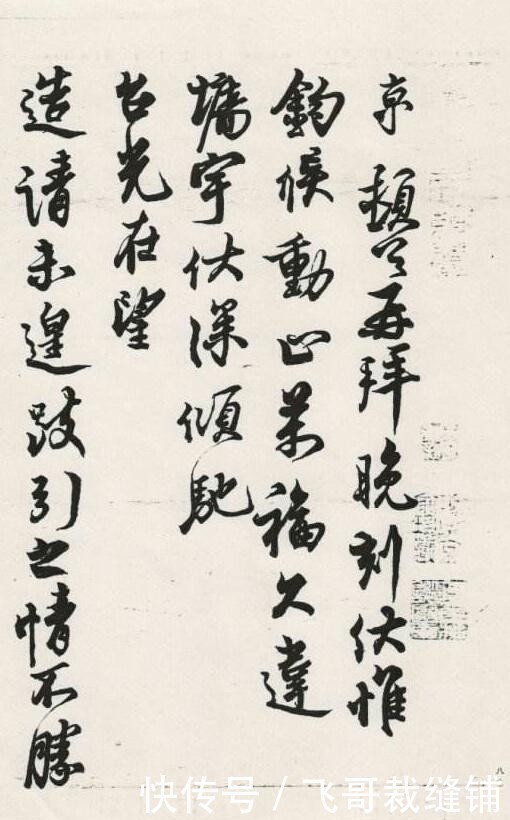 京頓首再拜晚刻伏惟
鈞候動止萬福久違
墻宇伏深傾馳
台光在望
造請未遑跂引之情不勝
八
快传号/飞哥裁缝铺